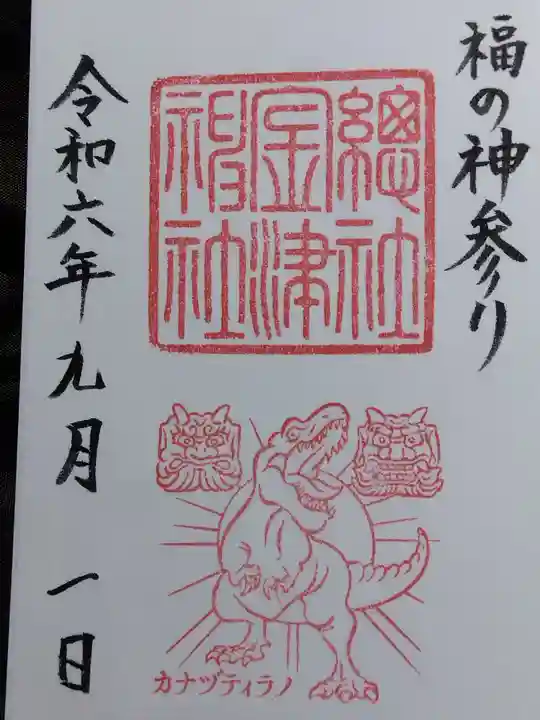 福の神参り
總社
金津
神社
カナヅティラノ
令和六年九月一日